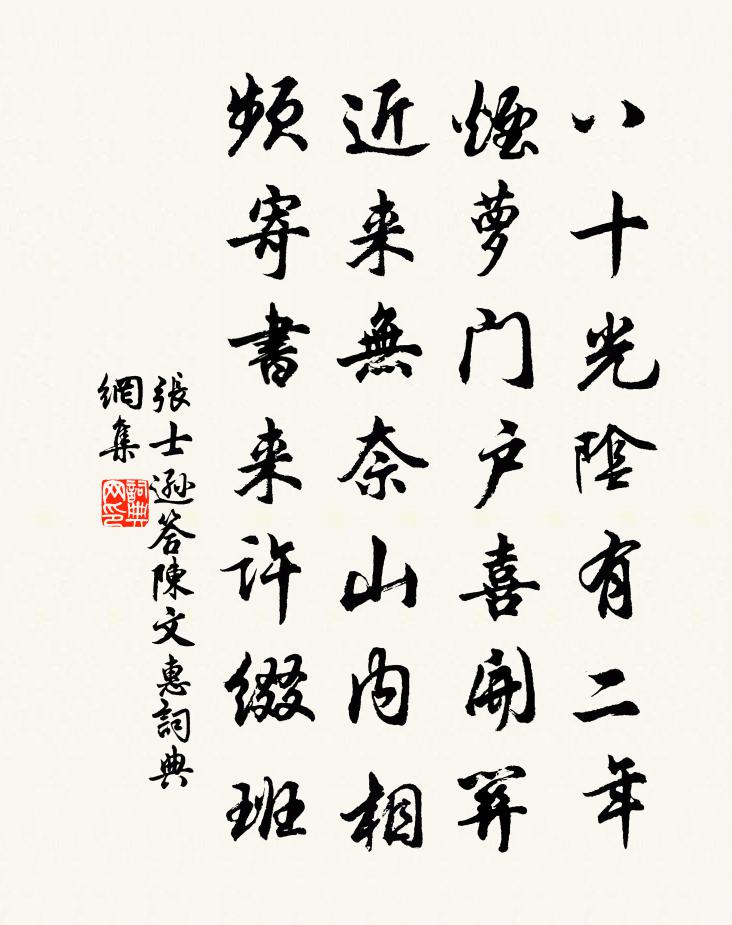 八十光陰有二年
煙蘿門户喜開關
近来無奈山内相
頻寄書来許綴班
張士遜答陳文惠詞典
網集
詞典
网印